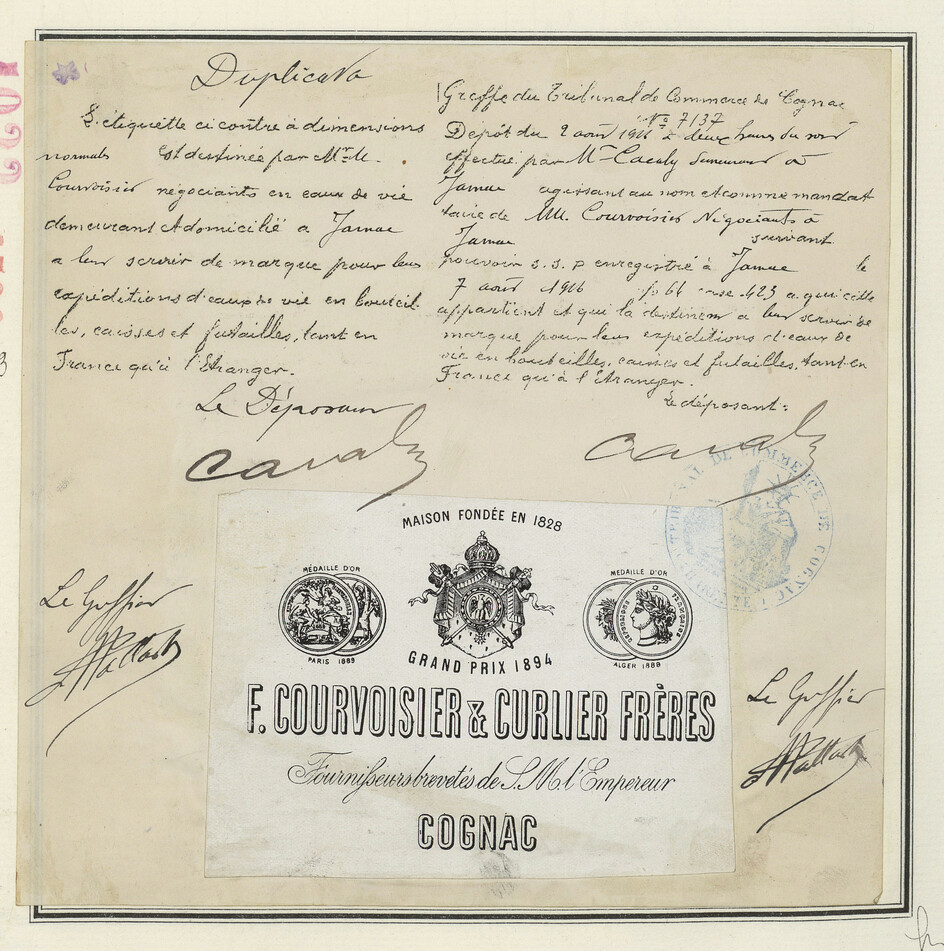 Duplicata
L'étiquette ci contre à dimensions
normales est destinée par Mr. M.
Courvoisier négociants en eaux de vie
demeurant et domicilié a Jarnac
a leur servir de marque pour leurs
expéditions d'eaux de vie en bouteil
les, caisses et futailles, tant en
France qu'à l'Etranger.
Le Déposant
Greffe du Tribunal de Commerce de Cognac
No 7137
Dépôt du 2 août à deux heures du soir
effectué par Mr demeurant à
Jarnac agissant au nom et comme mandat
taire de MM. Courvoisier Négociants à
Jarnac suivant
pouvoir s. s. p enregistré à Jarnac le
7 août 1916 fo 66 case 423 a qui elle
appartient et qui la destinent a leur servir de
marque pour leurs expéditions d'eaux de
vie en bouteilles, caisses et futailles, tant en
France qu'à l'Etranger.
Le déposant:
TRIBUNAL DE COMMERCE DE COGNAC
MAISON FONDÉE EN 1828
MÉDAILLE D'OR
PARIS 1889
GRAND PRIX 1894
MEDAILLE D'OR
REPUBLIQUE FRANÇAISE
ALGER 1888
F. COURVOISIER & CURLIER FRÈRES
Fournisseurs brevetés de S. M. l'Empereur
COGNAC
Le Greffier
Le Greffier